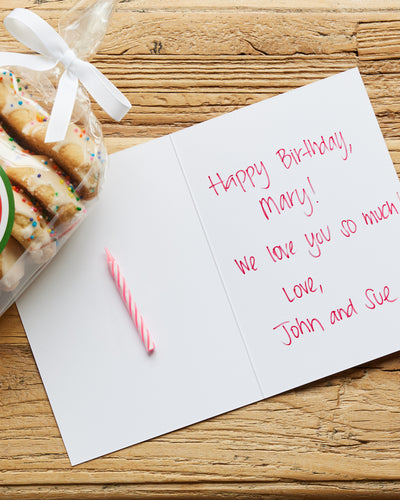 Happy Birthday,
Mary!
We love you so much!
Love,
John and Sue